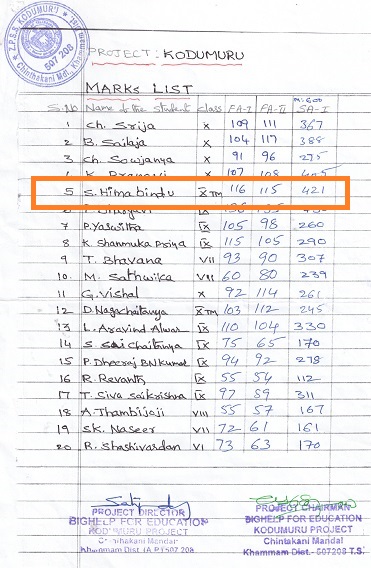 Z.P.S.S. KODUMURU
Chinthakani Mdl., Khammam
507 208
PROJECT: KODUMURU
MARKS LIST
M:600
S.No Name of the student class FA-I FA-II SA-I
1 Ch. Srija X 109 111 367
2 B. Sailaja X 104 117 388
3 Ch. Sowjanya X 91 96 275
K. X 107 108
5 S. Hima bindu IX TM 116 115 421
7 P. Yaswitha IX 105 98 260
8 K. Shanmuka Priya IX 115 109 290
9 T. Bhavana VII 93 90 307
10. M. Sathwika VII 60 80 239
11 G. Vishal X 92 114 261
12 D. Nagachaitanya X TM 103 112 245
13 L. Aravind Alwar IX 110 104 330
14 S. Sai Chaitanya IX 75 65 170
15 P. Dheeraj BN Kumar IX 94 92 278
16 R. Revanth IX 55 54 112
17 T. Siva Saikrishna IX 97 59 311
18 A. Thambi VIII 55 57 167
19 SK. Naseer VII 72 61 161
20 R. Shashivardan VI 73 63 170
PROJECT DIRECTOR
BIGHELP FOR EDUCATION
KODUMURU PROJECT
Chintakani Mandal
Khammam Dist (A.P) 507 208
PROJECT CHAIRMAN
BIGHELP FOR EDUCATION
KODUMURU PROJECT
Chintakani Mandal
Khammam Dist.- 507208 T.S.